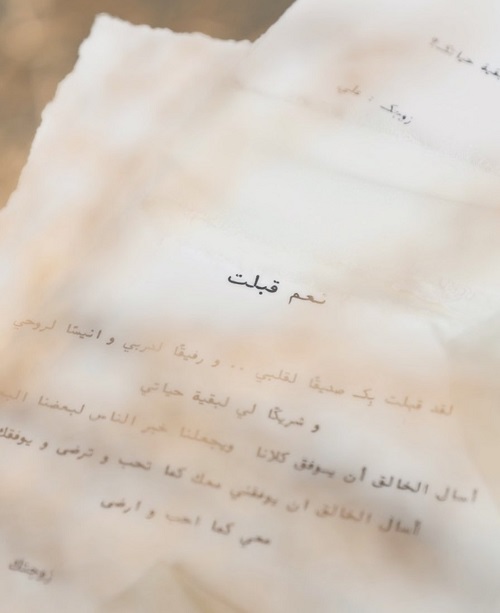 زوجك / علي
نعم قبلت
لقد قبلت بك صديقًا لقلبي .. و رفيقًا لدربي و انيسًا لروحي
و شريكًا لي لبقية حياتي
أسال الخالق أن يوفق كلانا ويجعلنا خير الناس لبعضنا
أسال الخالق ان يوفقني معك كما تحب و ترضى و يوفقك
معي كما احب و ارضى
زوجتك